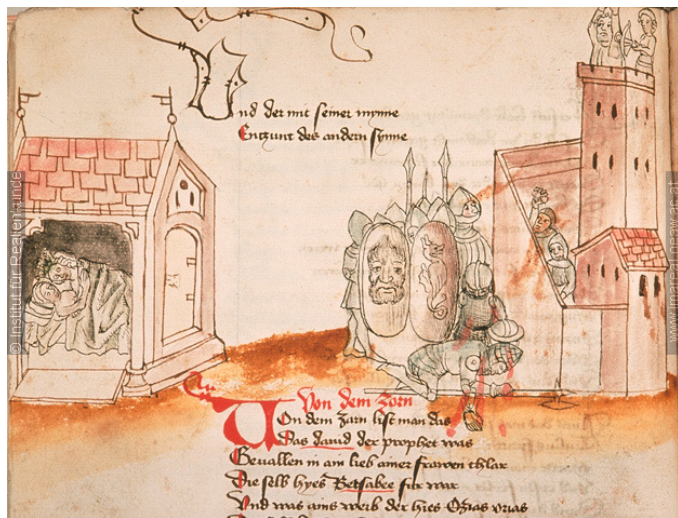 Und der mit seiner mynne
Entzunt des andern synne
Von dem Zorn
Von dem Zarn list man das
Das david der prophet was
Gevallen in ain lieb ainer frawen chlar
Die selb hyes Betsabee fur war
Und was ains weib der hies Ozias vrias
© Institut für Realienkunde